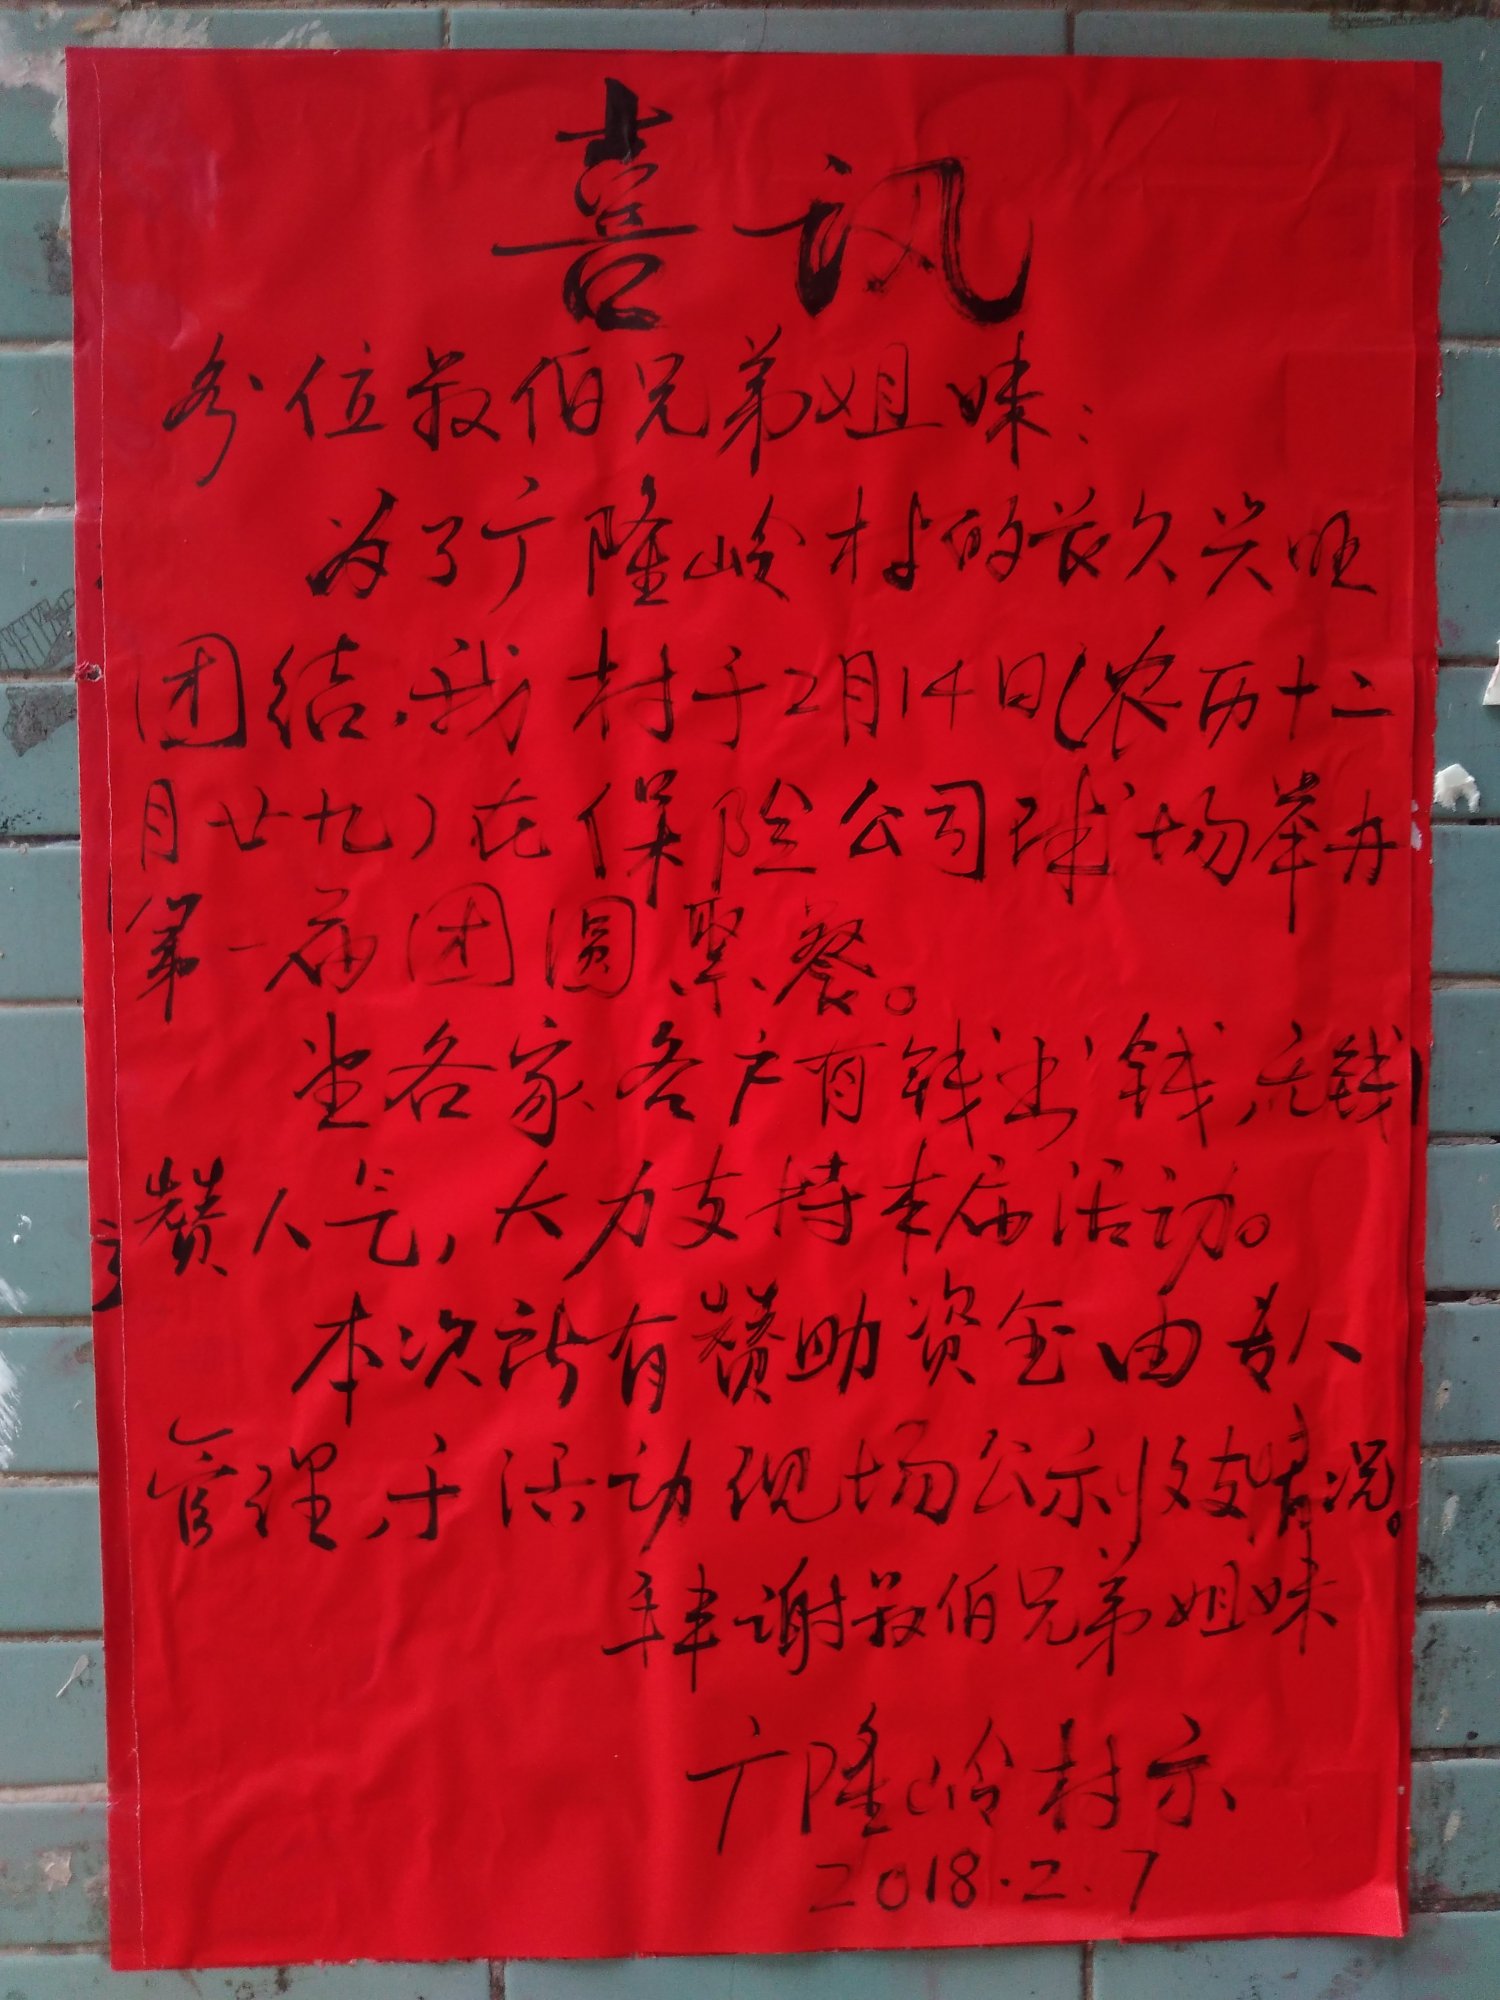 喜讯
各位叔伯兄弟姐妹:
为了广隆岭村的长久兴旺
团结,我村于2月14日(农历十二
月廿九)在保险公司球场举办
第一届团圆聚餐。
望各家各户有钱出钱,无钱
赞人气,大力支持本届活动。
本次所有赞助资金由专人
管理,于活动现场公示收支情况。
拜谢叔伯兄弟姐妹
广隆岭村示
2018.2.7